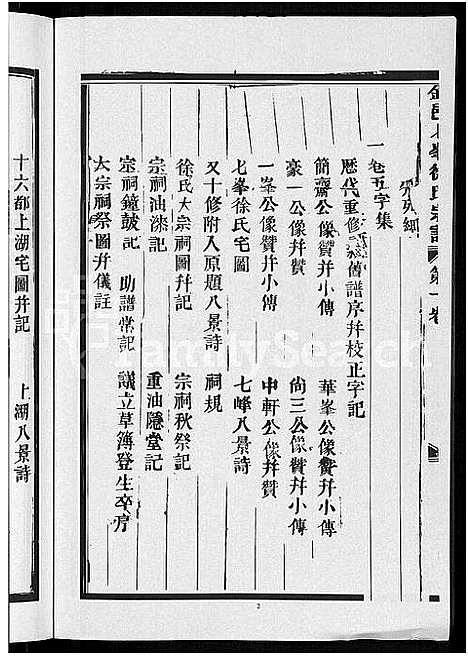 宗譜
第一卷
一卷五字集
歷代重修 舊譜序幷校正字記
簡齋公像贊幷小傳 華峯公像贊幷小傳
豪一公像幷贊 尙三公像贊幷小傳
一峯公像贊幷小傳 中軒公像幷贊
七峯徐氏宅圖 七峰八景詩
又十修附入原題八景詩 祠規
徐氏大宗祠圖幷記 宗祠秋祭記
宗祠油漆記 重油隱堂記
宗祠鐘鼓記 助譜常記 議立草簿登生卒序
大宗祠祭圖幷儀註
十六都上湖宅圖幷記 上湖八景詩
2
FamilySearch